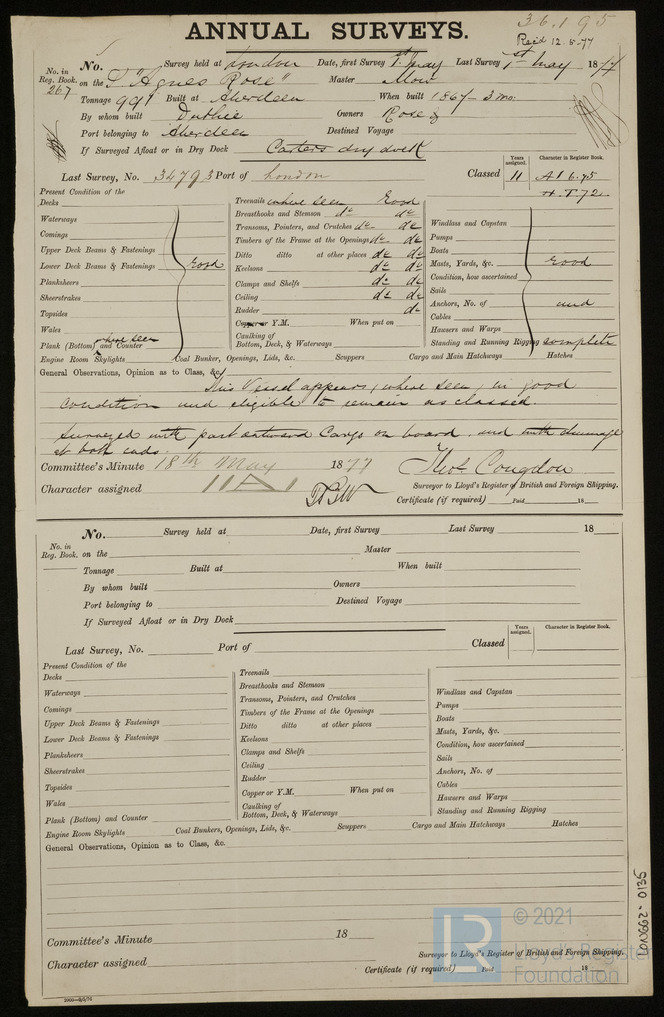 36.195
ANNUAL SURVEYS.
Rec'd 12.5.77
No. Survey held at London Date, first Survey 1st May Last Survey 1st May 1877
No. in Reg. Book. 267 on the S "Agnes Rose" Master
Tonnage 991 Built at Aberdeen When built 1867 - 3 mo
By whom built Duthie Owners Rose &
Port belonging to Aberdeen Destined Voyage
If Surveyed Afloat or in Dry Dock Carters dry dock
Last Survey, No. 34793 Port of London Classed Years assigned. 11 Character in Register Book. A1 6.75
H.T.72
Present Condition of the
Decks
Waterways
Comings
Upper Deck Beams & Fastenings
Lower Deck Beams & Fastenings Good
Planksheers
Sheerstrakes
Topsides
Wales
Plank (Bottom) where seen and Counter
Treenails where seen Good
Breasthooks and Stemson do do
Transoms, Pointers, and Crutches do do
Timbers of the Frame at the Openings do do
Ditto ditto at other places do do
Keelsons do do
Clamps and Shelfs do do
Ceiling do do
Rudder do
Copper or Y.M. When put on
Caulking of Bottom, Deck, & Waterways
Windlass and Capstan
Pumps
Boats
Masts, Yards, &c. Good
Condition, how ascertained
Sails
Anchors, No. of and
Cables
Hawsers and Warps
Standing and Running Rigging complete
Engine Room Skylights Coal Bunker, Openings, Lids, &c. Scuppers Cargo and Main Hatchways Hatches
General Observations, Opinion as to Class, &c.
This Vessel appears, where seen, in good
condition and eligible to remain as classed.
Surveyed with part Cargo on board and
at both ends.
Committee's Minute 18th May 1877
Character assigned 11A1
Surveyor to Lloyd's Register of British and Foreign Shipping.
Certificate (if required) Paid 18
No. Survey held at Date, first Survey Last Survey 18
No. in Reg. Book. on the Master
Tonnage Built at When built
By whom built Owners
Port belonging to Destined Voyage
If Surveyed Afloat or in Dry Dock
Last Survey, No. Port of Classed Years assigned. Character in Register Book.
Present Condition of the
Decks
Waterways
Comings
Upper Deck Beams & Fastenings
Lower Deck Beams & Fastenings
Planksheers
Sheerstrakes
Topsides
Wales
Plank (Bottom) and Counter
Treenails
Breasthooks and Stemson
Transoms, Pointers, and Crutches
Timbers of the Frame at the Openings
Ditto ditto at other places
Keelsons
Clamps and Shelfs
Ceiling
Rudder
Copper or Y.M. When put on
Caulking of Bottom, Deck, & Waterways
Windlass and Capstan
Pumps
Boats
Masts, Yards, &c.
Condition, how ascertained
Sails
Anchors, No. of
Cables
Hawsers and Warps
Standing and Running Rigging
Engine Room Skylights Coal Bunkers, Openings, Lids, &c. Scuppers Cargo and Main Hatchways Hatches
General Observations, Opinion as to Class, &c.
Committee's Minute 18
Character assigned
Surveyor to Lloyd's Register of British and Foreign Shipping.
Certificate (if required) Paid 18
LON662-0135
LR © 2021
Lloyd's Register
Foundation